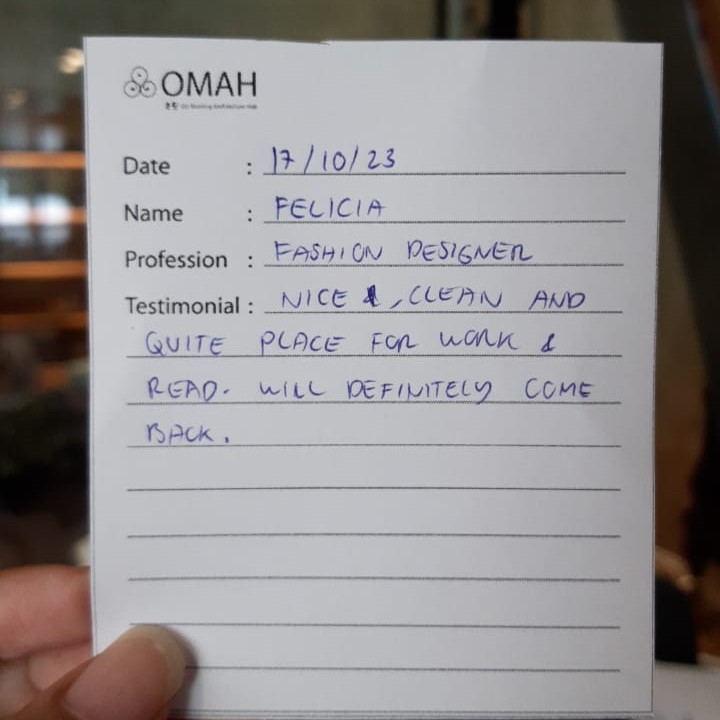 OMAH
Date : 17/10/23
Name : FELICIA
Profession : FASHION DESIGNER
Testimonial : NICE , CLEAN AND
QUITE PLACE FOR WORK &
READ. WILL DEFINITELY COME
BACK.